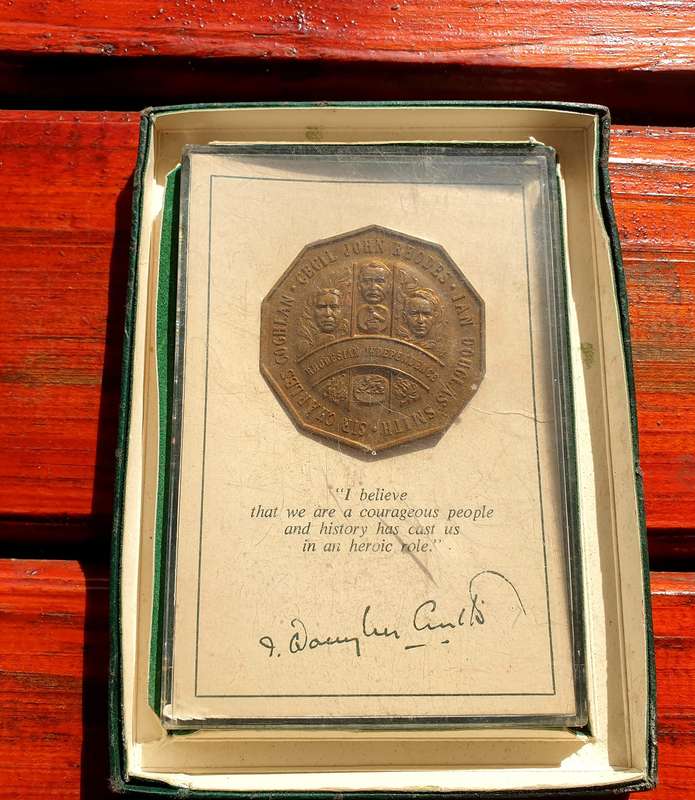 CECIL JOHN RHODES · IAN DOUGLAS SMITH · SIR CHARLES COGHLAN ·
RHODESIAN INDEPENDENCE
"I believe
that we are a courageous people
and history has cast us
in an heroic role."
I. Douglas Smith